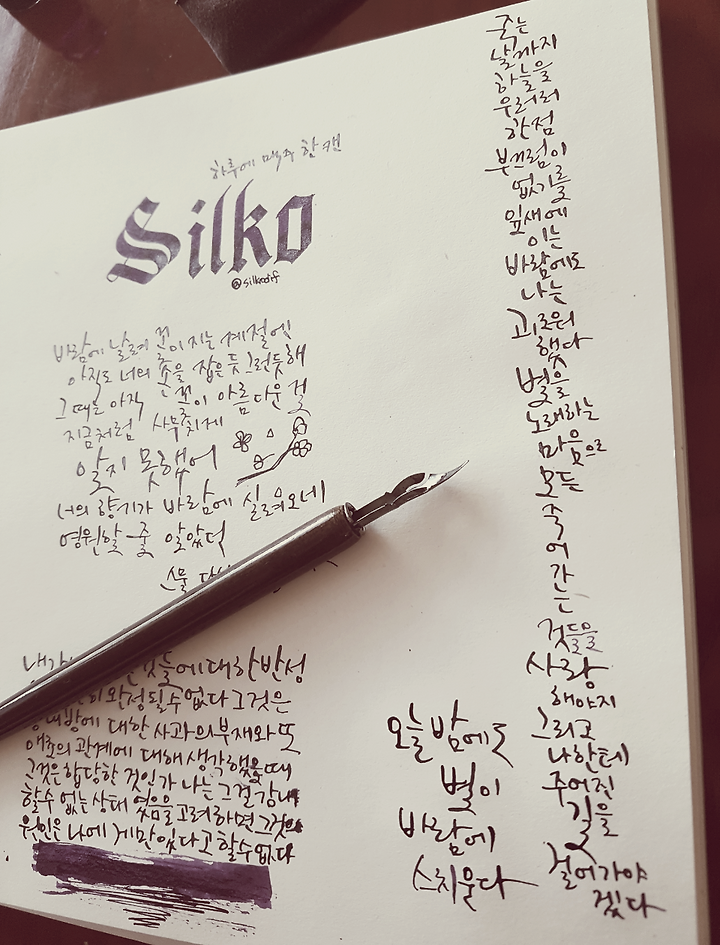 하루에 맥주 한 캔
Silko
@silkodif
바람에 날려 꽃이 지는 계절엔
아직도 너의 손을 잡은 듯 그런듯 해
그때는 아직 꽃이 아름다운 걸
지금처럼 사무치게
알지 못했어
너의 향기가 바람에 실려오네
영원할 줄 알았던
스물
내가 것들에 대한 반성
완성될 수 없다 그것은
대한 사과의 부재와 또
애초의 관계에 대해 생각했을 때
그것은 합당한 것인가 나는 그걸 감내
할 수 없는 상태 였음을 고려하면 그것의
원인은 나에게만 있다고 할 수 없다
죽는
날까지
하늘을
우러러
한점
부끄럼이
없기를
잎새에
이는
바람에도
나는
괴로워
했다
별을
노래하는
마음으로
모든
죽
어
간
는
것들을
사랑
해야지
그리고
나한테
주어진
길을
걸어가야
겠다
오늘 밤에도
별이
바람에
스치운다